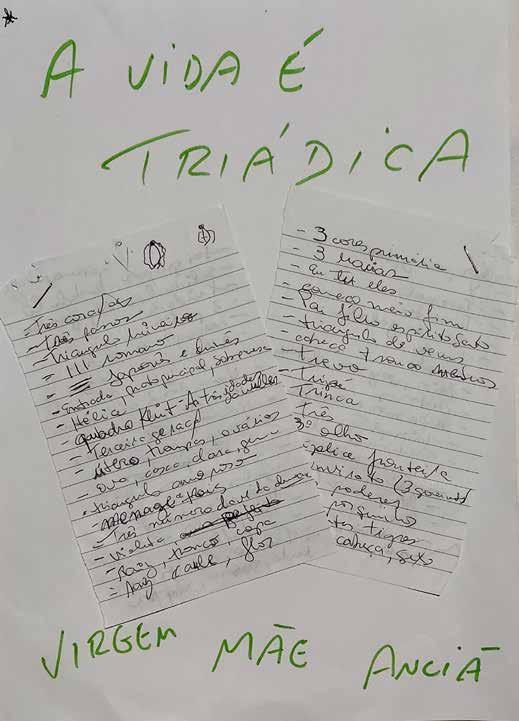 A VIDA É
TRIÁDICA
- Três corações
- três panos
- Triângulo
- III romano
- japonês e chinês
- Entrada, prato principal, sobremesa
- Hélice
- quadro Klint - As três idades da mulher
- Terceira geração
- útero, trompas, ovários
- ovo, casca, clara, gema
- triângulo amoroso
- menage à trous
- Três número
- violeta
- Raiz, tronco, copa
- Raiz caule, flor
- 3 cores primária
- 3 marias
- eu tu eles
- começo meio fim
- Pai filho espírito santo
- triângulo de venus
- cabeça tronco membros
- Trevo
- Tripé
Trinca
três
3º olho
poderes
porquinho
tigres
cabeça,
VIRGEM MÃE ANCIÃ